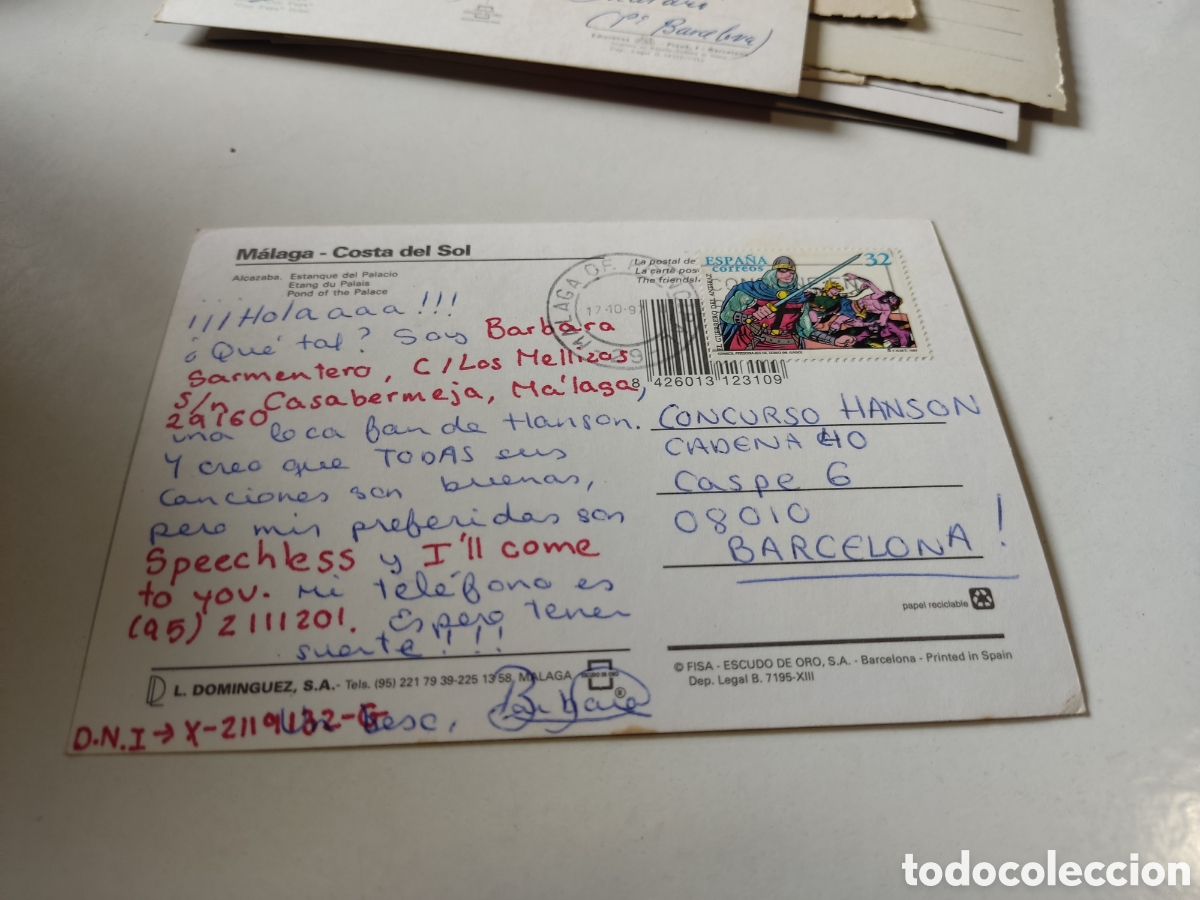 (ps Barcelona)
Málaga - Costa del Sol
Alcazaba. Estanque del Palacio
Etang du Palais
Pond of the Palace
¡¡¡Holaaaa!!!
¿Qué tal? Soy Barbara
Sarmentero, C/Los Mellizas
s/n Casabermeja, Málaga,
29160
una loca fan de Hanson.
Y creo que TODAS sus
canciones son buenas,
pero mis preferidas son
Speechless y I'll come
to you. Mi teléfono es
(95) 2111201. Espero tener
suerte!!!
L. DOMINGUEZ, S.A. - Tels. (95) 221 79 39-225 13 58, MALAGA
Un beso, Barbara
D.N.I → X-2119132-G
La postal de
La carte pos
The friendal
MALAGA
17-10-9
ESPAÑA
correos
32
EL GUERRERO DEL ANTIFAZ
8 426013 123109
CONCURSO HANSON
CADENA 40
Caspe 6
08010
BARCELONA!
papel reciclable
© FISA - ESCUDO DE ORO, S.A. - Barcelona - Printed in Spain
Dep. Legal B. 7195-XIII
ESCUDO DE ORO
®
todocoleccion